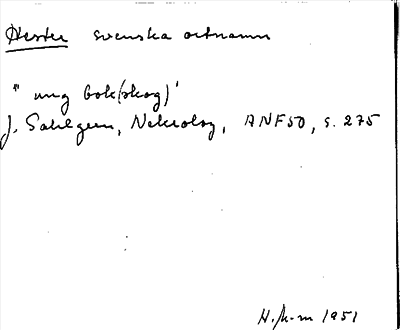 Hester svenska ortnamn
"ung bok(skog)'
J. Sahlgren, Nekrolog, ANF 50, s. 275
H. 1951